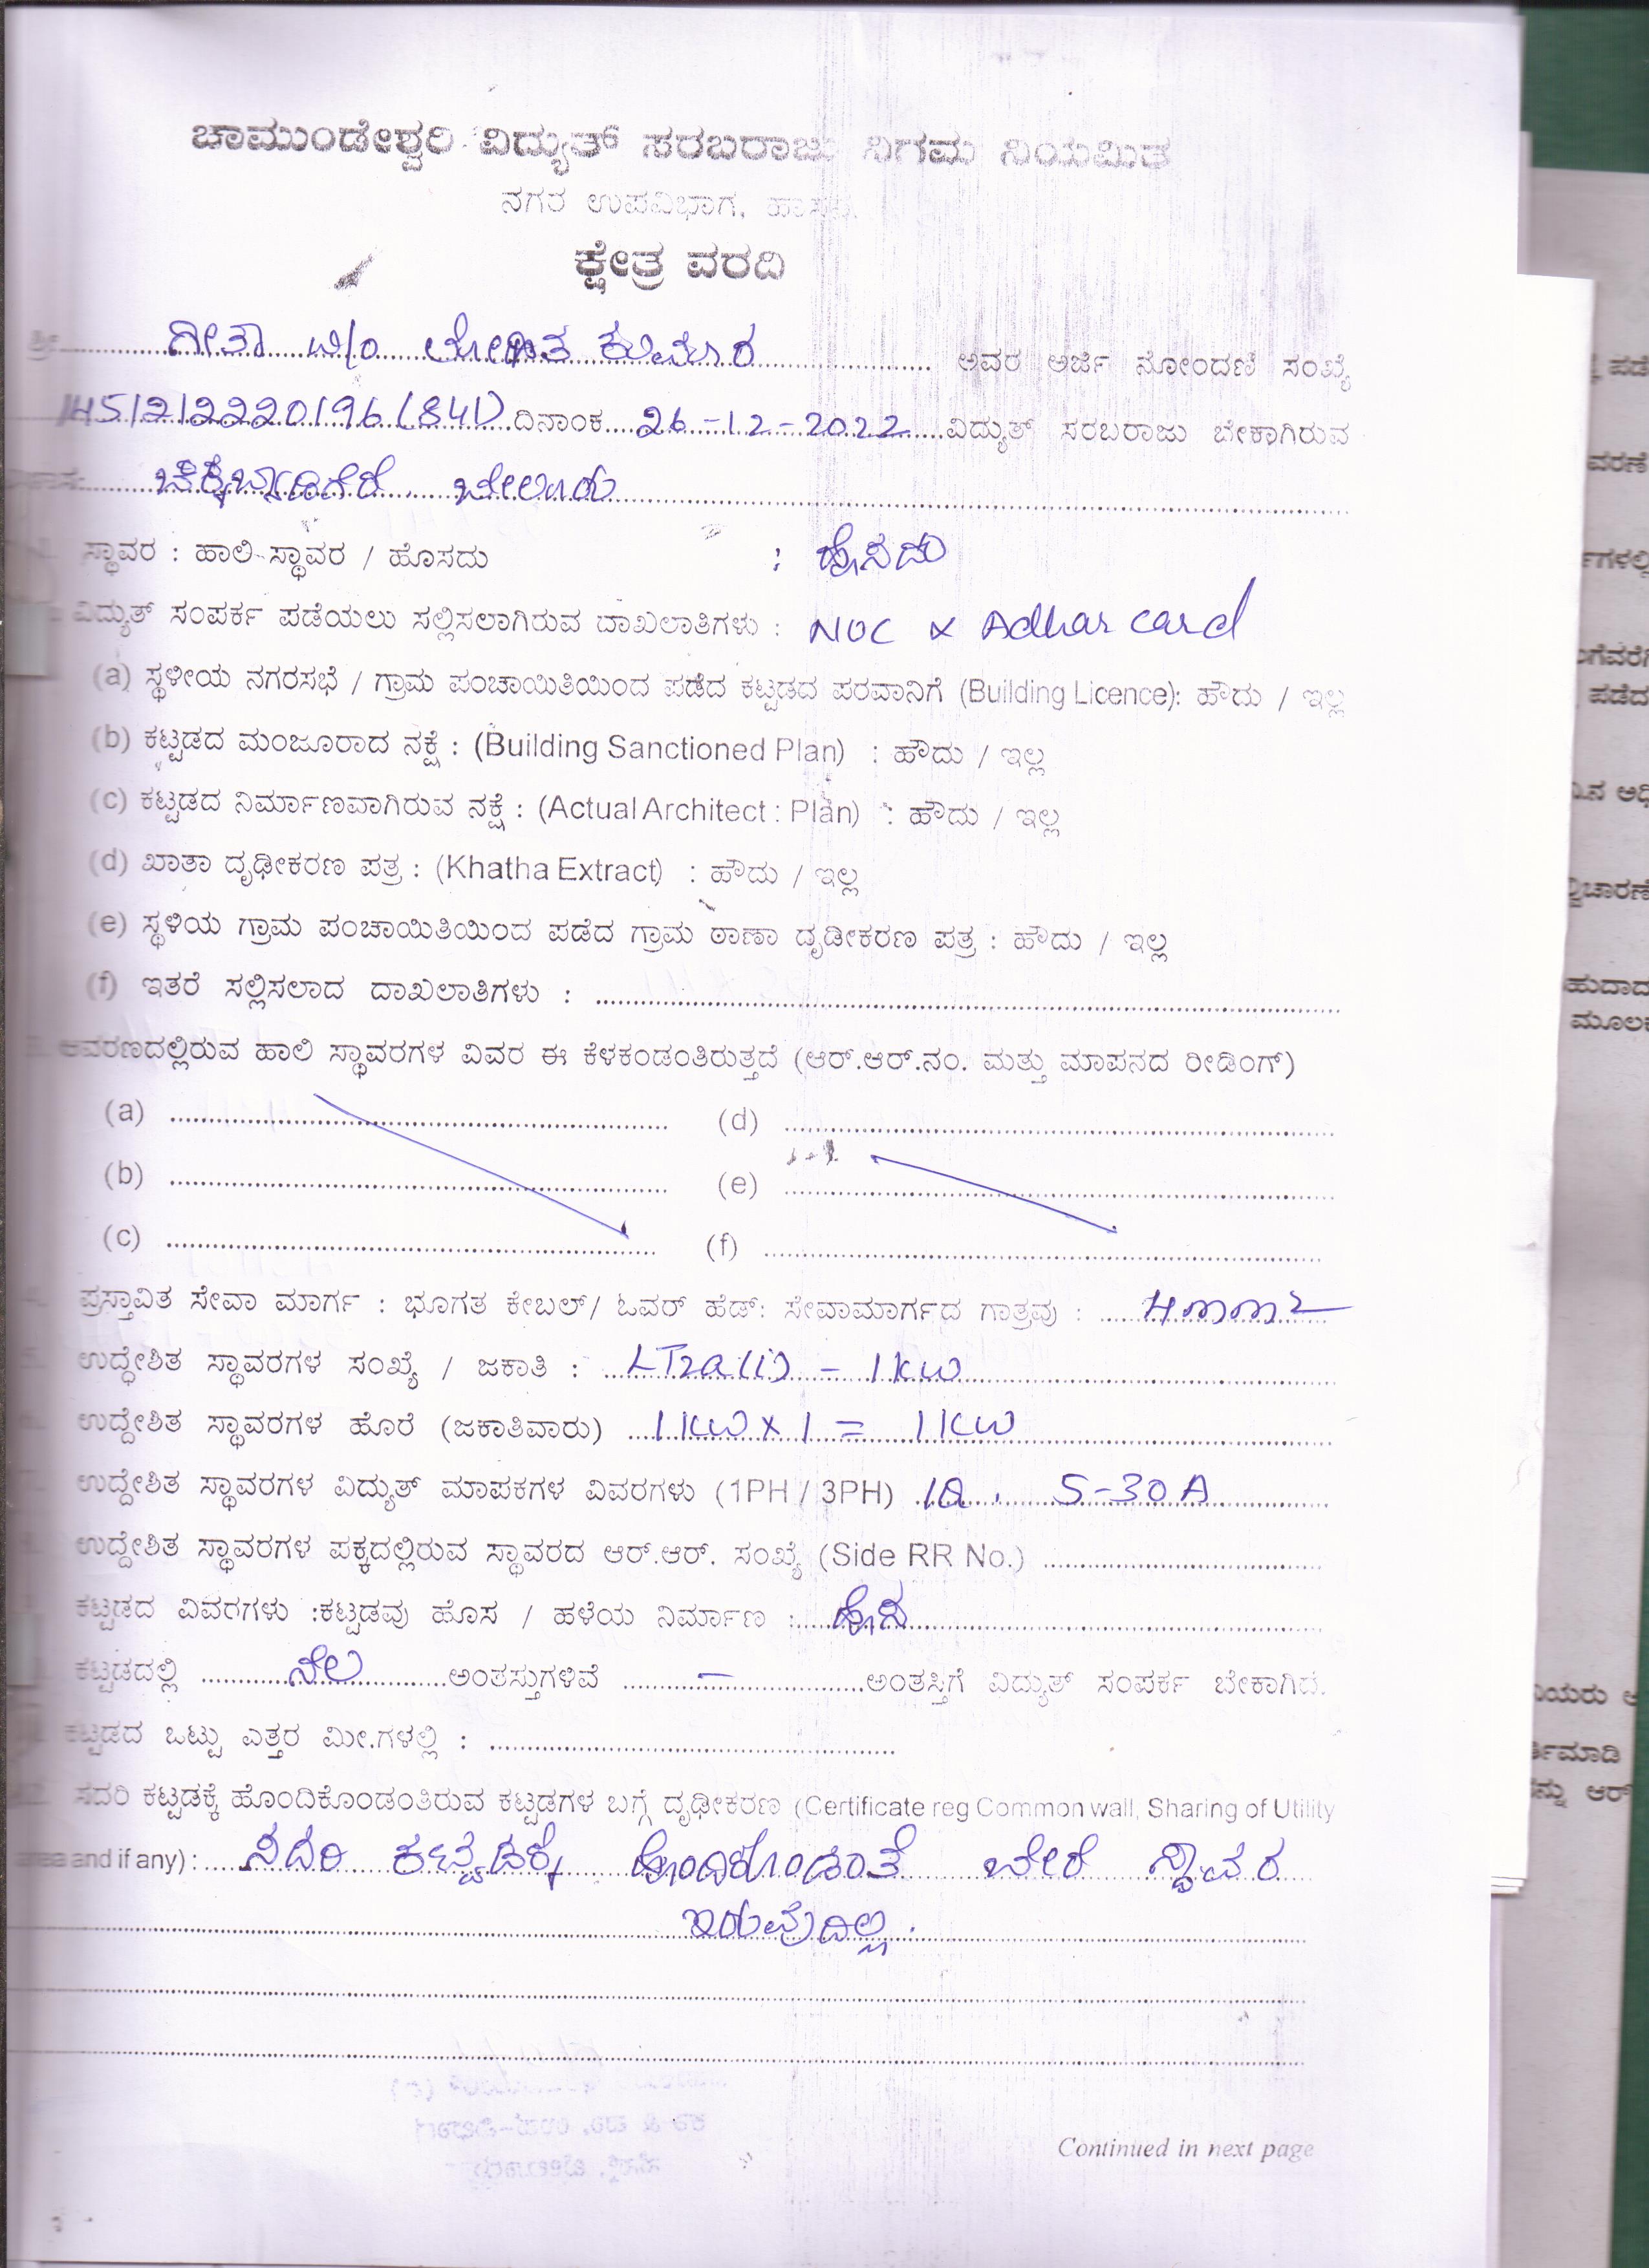 ಚಾಮುಂಡೇಶ್ವರಿ ವಿದ್ಯುತ್ ಸರಬರಾಜು ನಿಗಮ ನಿಯಮಿತ
ನಗರ ಉಪವಿಭಾಗ, ಹಾಸನ.
ಕ್ಷೇತ್ರ ವರದಿ
ಶ್ರೀ ಗೀತಾ W/O ಲೋಹಿತ ಕುಮಾರ ಅವರ ಅರ್ಜಿ ನೋಂದಣಿ ಸಂಖ್ಯೆ
1451212220196 (841) ದಿನಾಂಕ 26-12-2022 ವಿದ್ಯುತ್ ಸರಬರಾಜು ಬೇಕಾಗಿರುವ
ಚಿಕ್ಕಬ್ಯಾಡಿಗೆರೆ, ಬೇಲೂರು
ಸ್ಥಾವರ : ಹಾಲಿ ಸ್ಥಾವರ / ಹೊಸದು : ಹೊಸದು
ವಿದ್ಯುತ್ ಸಂಪರ್ಕ ಪಡೆಯಲು ಸಲ್ಲಿಸಲಾಗಿರುವ ದಾಖಲಾತಿಗಳು : NOC & Adhar card
(a) ಸ್ಥಳೀಯ ನಗರಸಭೆ / ಗ್ರಾಮ ಪಂಚಾಯಿತಿಯಿಂದ ಪಡೆದ ಕಟ್ಟಡದ ಪರವಾನಿಗೆ (Building Licence): ಹೌದು / ಇಲ್ಲ
(b) ಕಟ್ಟಡದ ಮಂಜೂರಾದ ನಕ್ಷೆ : (Building Sanctioned Plan) : ಹೌದು / ಇಲ್ಲ
(c) ಕಟ್ಟಡದ ನಿರ್ಮಾಣವಾಗಿರುವ ನಕ್ಷೆ : (Actual Architect : Plan) : ಹೌದು / ಇಲ್ಲ
(d) ಖಾತಾ ದೃಢೀಕರಣ ಪತ್ರ : (Khatha Extract) : ಹೌದು / ಇಲ್ಲ
(e) ಸ್ಥಳಿಯ ಗ್ರಾಮ ಪಂಚಾಯಿತಿಯಿಂದ ಪಡೆದ ಗ್ರಾಮ ಠಾಣಾ ದೃಡೀಕರಣ ಪತ್ರ : ಹೌದು / ಇಲ್ಲ
(f) ಇತರೆ ಸಲ್ಲಿಸಲಾದ ದಾಖಲಾತಿಗಳು :
ಆವರಣದಲ್ಲಿರುವ ಹಾಲಿ ಸ್ಥಾವರಗಳ ವಿವರ ಈ ಕೆಳಕಂಡಂತಿರುತ್ತದೆ (ಆರ್.ಆರ್.ನಂ. ಮತ್ತು ಮಾಪನದ ರೀಡಿಂಗ್)
(a) (d)
(b) (e)
(c) (f)
ಪ್ರಸ್ತಾವಿತ ಸೇವಾ ಮಾರ್ಗ : ಭೂಗತ ಕೇಬಲ್/ ಓವರ್ ಹೆಡ್: ಸೇವಾಮಾರ್ಗದ ಗಾತ್ರವು : 4mm2
ಉದ್ಧೇಶಿತ ಸ್ಥಾವರಗಳ ಸಂಖ್ಯೆ / ಜಕಾತಿ : LT2a(i) - 1kw
ಉದ್ದೇಶಿತ ಸ್ಥಾವರಗಳ ಹೊರೆ (ಜಕಾತಿವಾರು) 1KW x 1 = 1KW
ಉದ್ದೇಶಿತ ಸ್ಥಾವರಗಳ ವಿದ್ಯುತ್ ಮಾಪಕಗಳ ವಿವರಗಳು (1PH / 3PH) 5-30A
ಉದ್ದೇಶಿತ ಸ್ಥಾವರಗಳ ಪಕ್ಕದಲ್ಲಿರುವ ಸ್ಥಾವರದ ಆರ್.ಆರ್. ಸಂಖ್ಯೆ (Side RR No.)
ಕಟ್ಟಡದ ವಿವರಗಳು :ಕಟ್ಟಡವು ಹೊಸ / ಹಳೆಯ ನಿರ್ಮಾಣ : ಹೊಸ
ಕಟ್ಟಡದಲ್ಲಿ ನೆಲ ಅಂತಸ್ತುಗಳಿವೆ - ಅಂತಸ್ತಿಗೆ ವಿದ್ಯುತ್ ಸಂಪರ್ಕ ಬೇಕಾಗಿದೆ.
ಕಟ್ಟಡದ ಒಟ್ಟು ಎತ್ತರ ಮೀ.ಗಳಲ್ಲಿ :
ಸದರಿ ಕಟ್ಟಡಕ್ಕೆ ಹೊಂದಿಕೊಂಡಂತಿರುವ ಕಟ್ಟಡಗಳ ಬಗ್ಗೆ ದೃಢೀಕರಣ (Certificate reg Common wall, Sharing of Utility
area and if any) : ಸದರಿ ಕಟ್ಟಡಕ್ಕೆ ಹೊಂದಿಕೊಂಡಂತೆ ಬೇರೆ ಸ್ಥಾವರ
ಇರುವುದಿಲ್ಲ.
Continued in next page